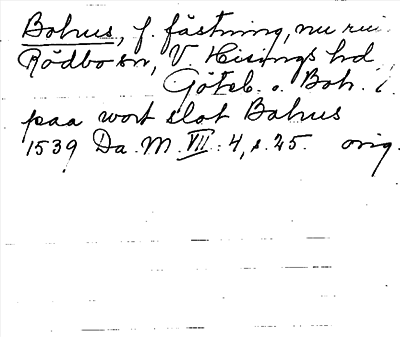 Bohus, f. fästning, nu rui
Rödbo sn, V. Hisings hd,
Göteb. o. Boh. l.
paa wort slot Bahus
1539 Da. M. VII: 4, s. 25. orig.